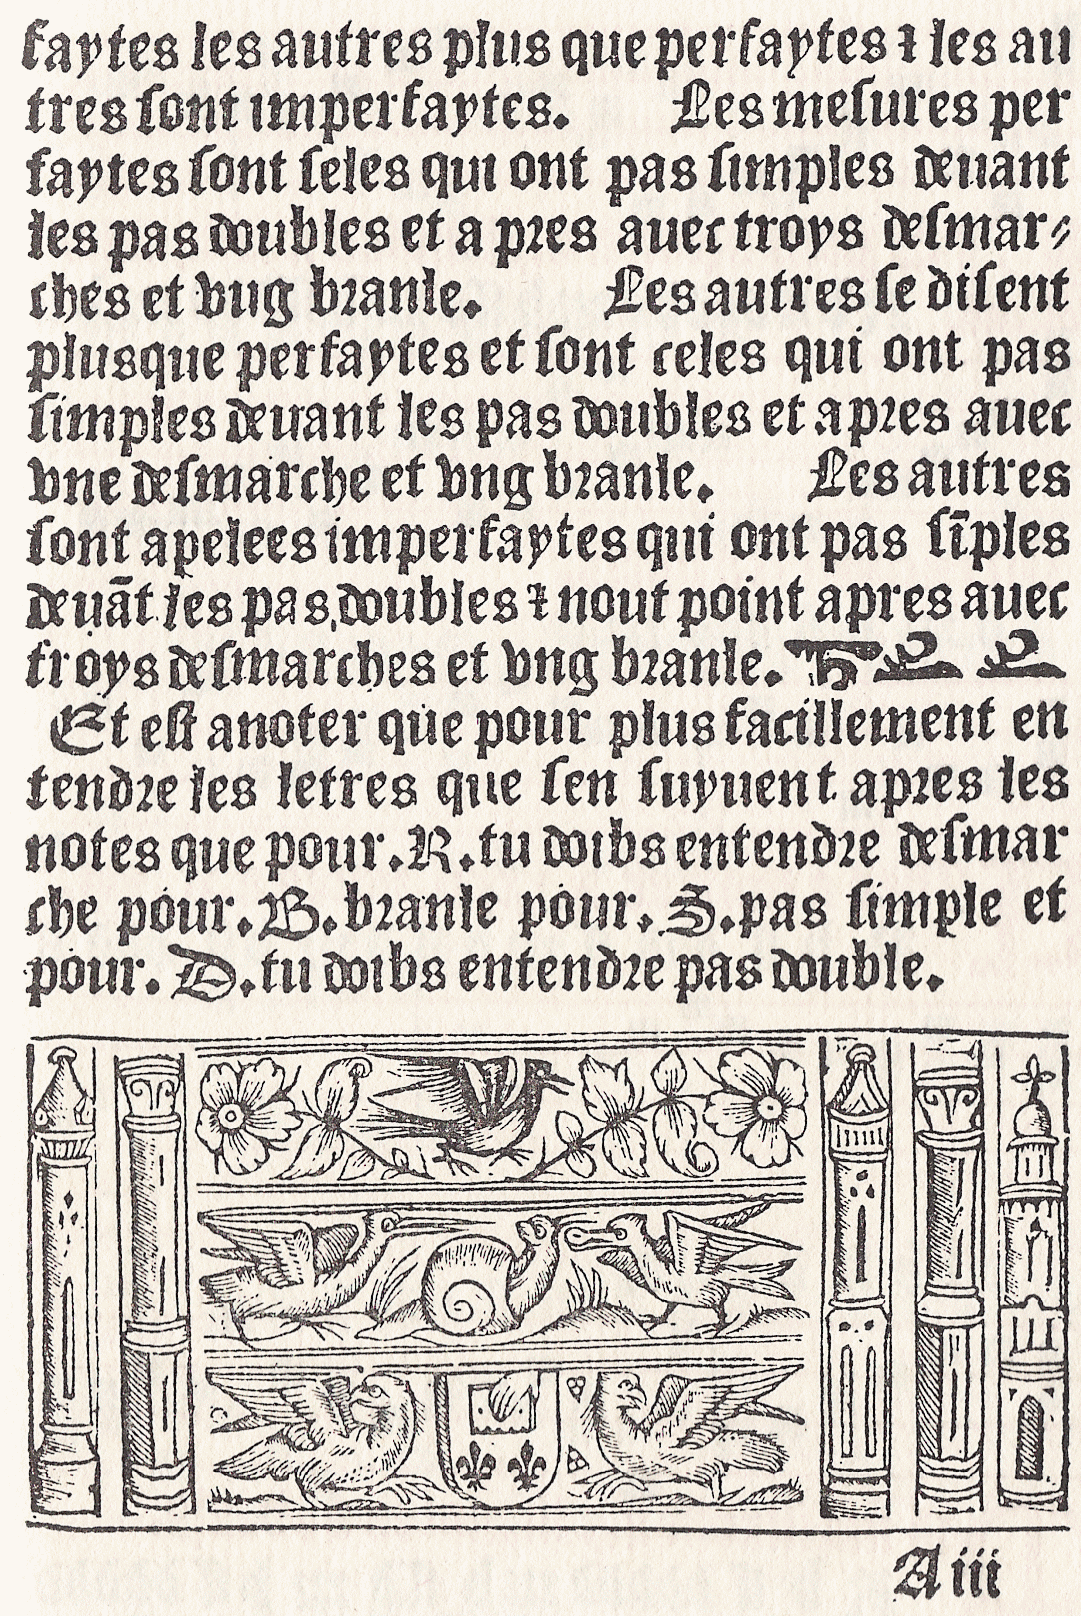 faytes les autres plus que perfaytes ⁊ les au
tres ſont imperfaytes. Les meſures per
faytes ſont ſeles qui ont pas ſimples deuant
les pas doubles et a pꝛes auec troys deſmar⸗
ches et vug bꝛanle. Les autres ſe diſent
pluſque perfaytes et ſont celes qui ont pas
ſimples deuant les pas doubles et apꝛes auec
vne deſmarche et vng bꝛanle. Les autres
ſont apelees imperfaytes qui ont pas ſīples
deuāt les pas doubles ⁊ nout point apres auec
troys deſmarches et vng bꝛanle.
Et eſt anoter que pour plus facillement en
tendꝛe les letres que ſen ſuyuent apꝛes les
notes que pour .R. tu doibs entendꝛe deſmar
che pour .B. bꝛanle pour .S. pas ſimple et
pour .D. tu doibs entendꝛe pas double.
A iii